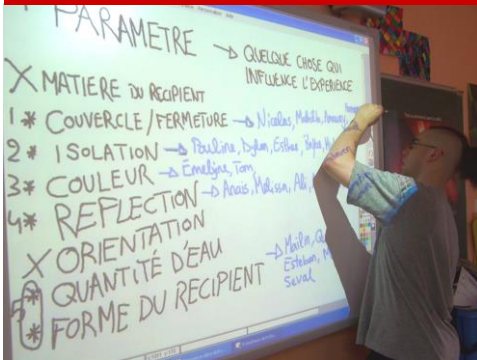 PARAMETRE → QUELQUE CHOSE QUI
INFLUENCE L'EXPERIENCE
X MATIERE DU RECIPIENT
1 * COUVERCLE/FERMETURE → Nicolas, Mathilde, Amaury,
2 * ISOLATION → Pauline, Dylan, Esther,
3 * COULEUR → Emeline, Tom
4 * REFLECTION → Anais, Melissa, Ali,
X ORIENTATION
5 * QUANTITÉ D'EAU → Maïlo,
* FORME DU RECIPIENT Esteban,
Seval